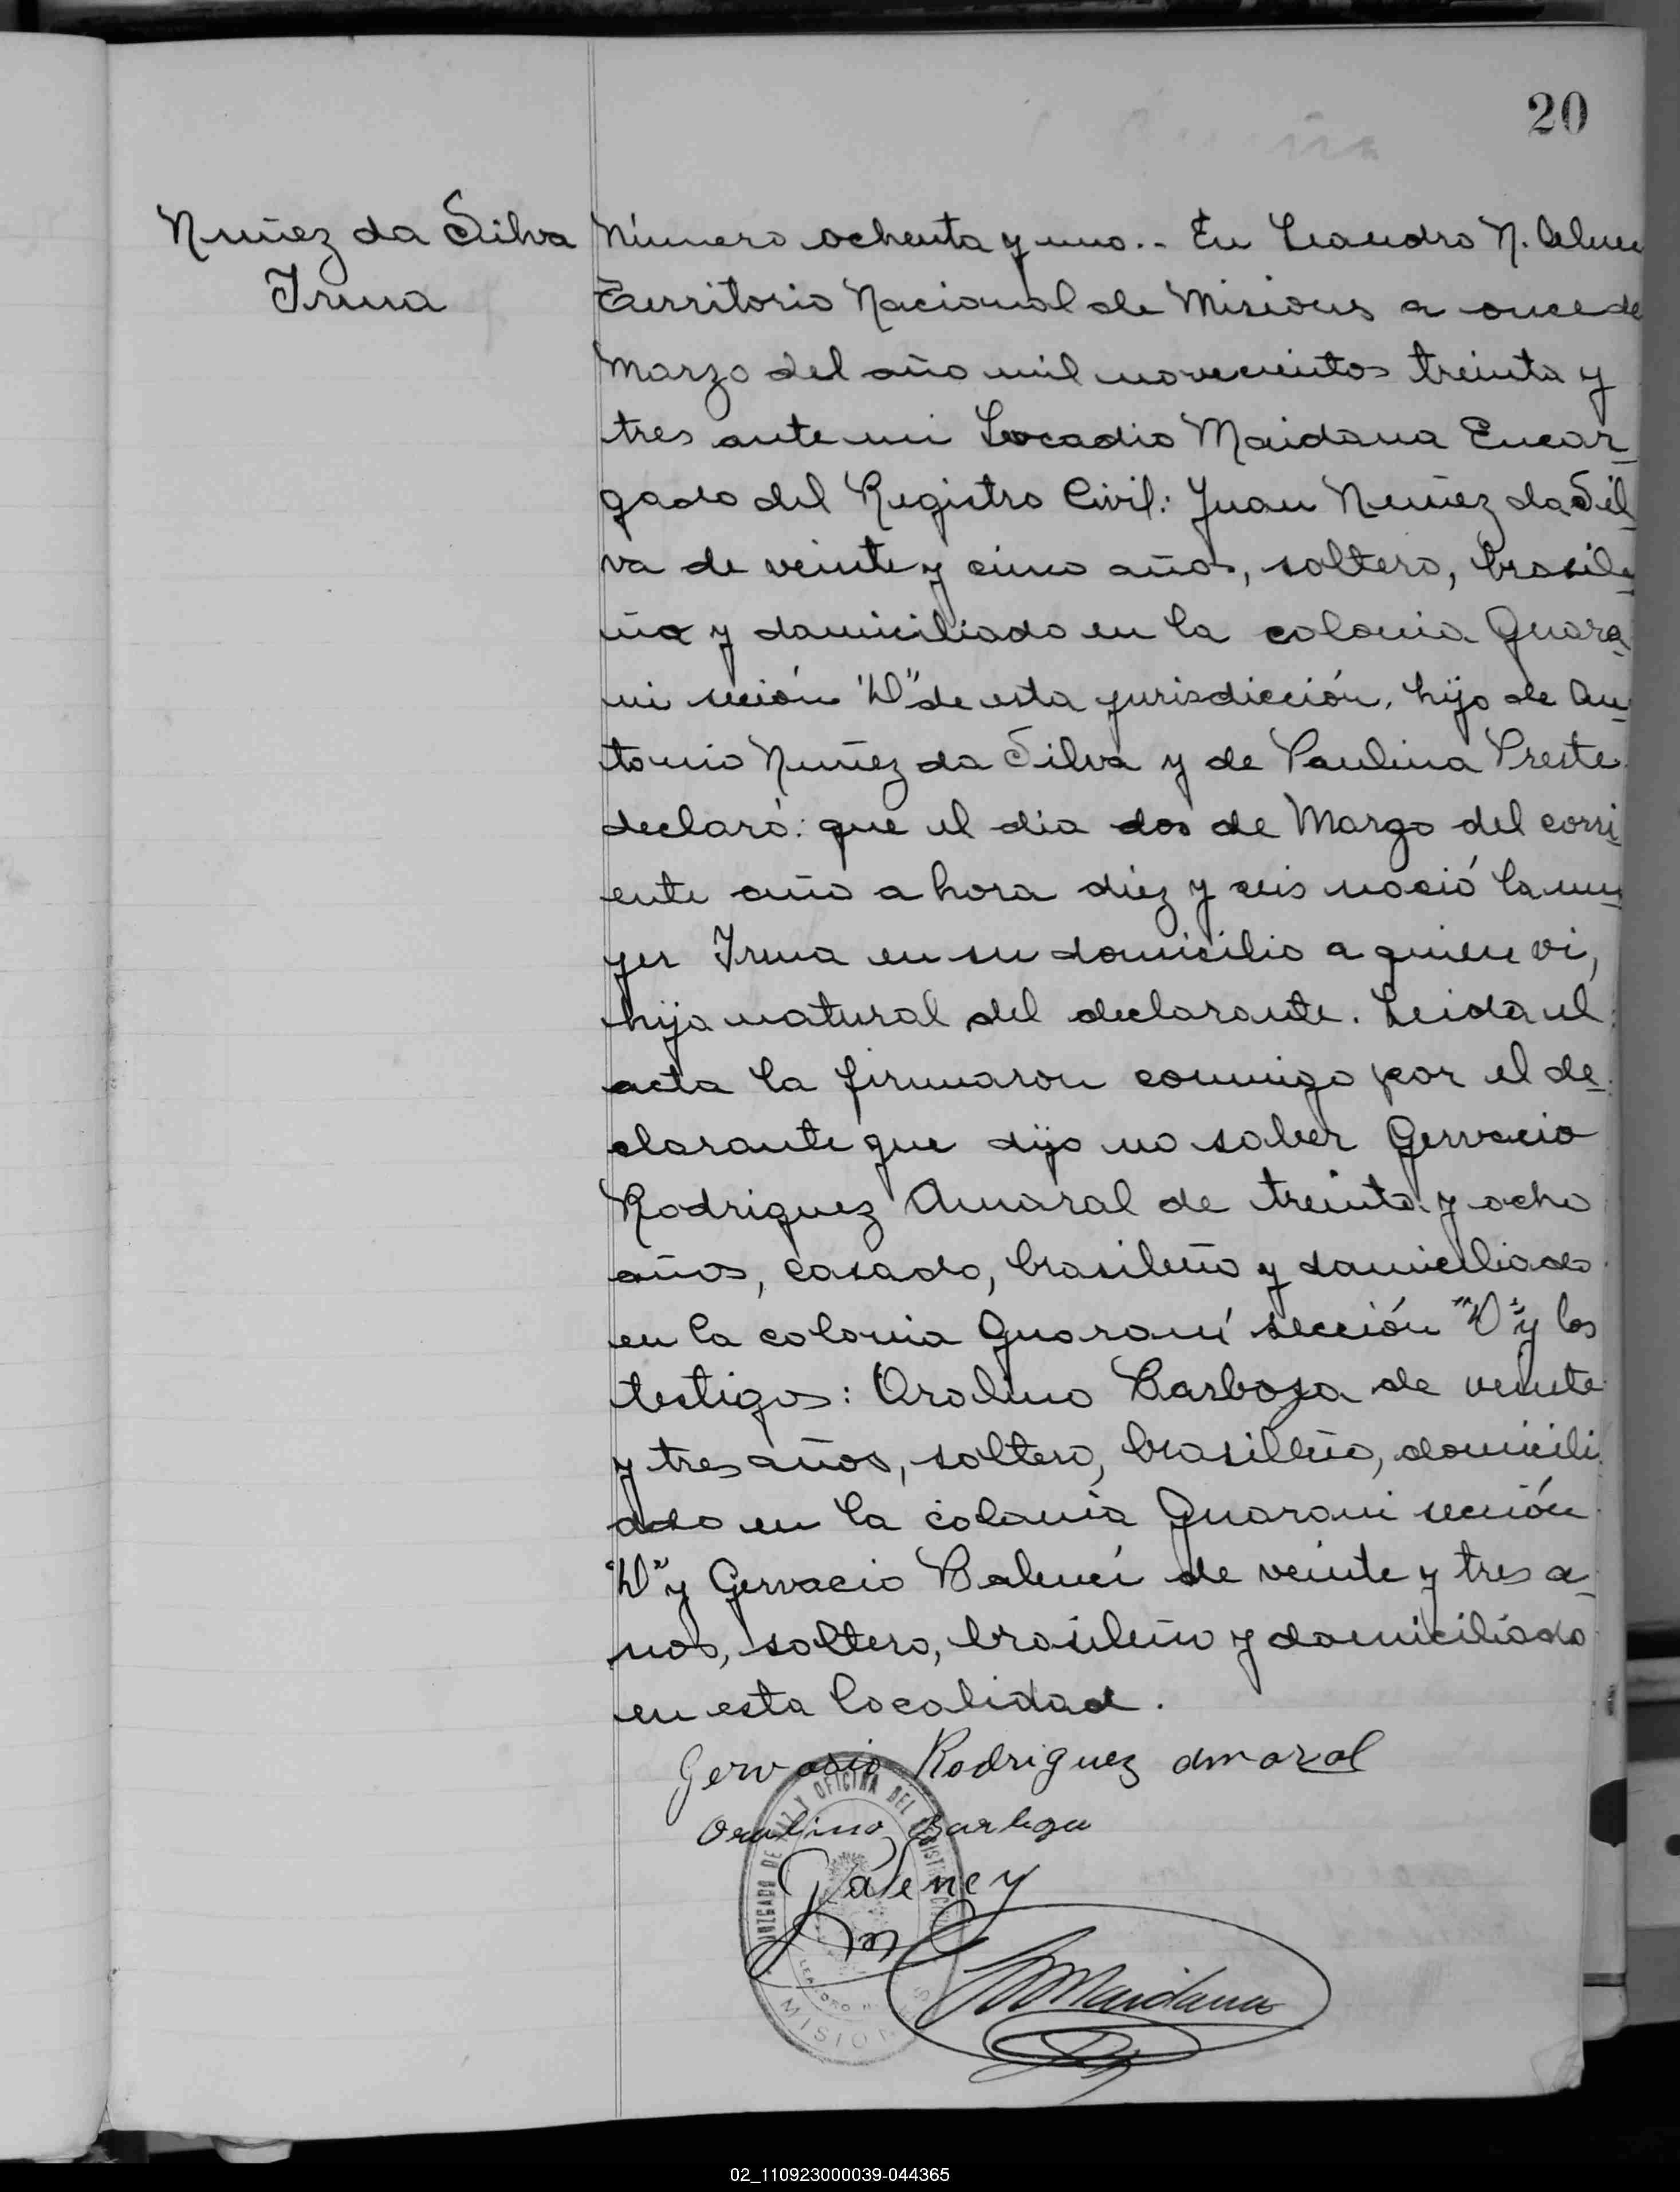 20
Nuñez da Silva
Irma
Número ochenta y uno.- En Leandro N. Alem
Territorio Nacional de Misiones a once de
Marzo del año mil novecientos treinta y
tres ante mi Leocadio Maidana Encar-
gado del Registro Civil: Juan Nuñez da Sil-
va de veinte y cinco años, soltero, brasile-
ño y domiciliado en la colonia Guara-
ni seción "D" de esta jurisdicción, hijo de An-
tonio Nuñez da Silva y de Paulina Preste
declaró: que el dia dos de Marzo del corri-
ente año a hora diez y seis nació la mu-
jer Irma en su domicilio a quien vi,
hija natural del declarante. Leida el
acta la firmaron conmigo por el de-
clarante que dijo no saber Gervacio
Rodriguez Amaral de treinta y ocho
años, casado, brasileño y domiciliado
en la colonia Guaraní sección "D" y los
testigos: Orolino Barboza de veinte
y tres años, soltero, brasileño, domicili
ado en la colonia Guarani sección
"D" y Gervacio Balenci de veinte y tres a-
ños, soltero, brasileño y domiciliado
en esta localidad.
Gervasio Rodriguez amaral
Orolino
JUZGADO DE PAZ Y OFICINA DEL REGISTRO CIVIL
LEANDRO N.
MISIONES
Maidana
02_110923000039-044365